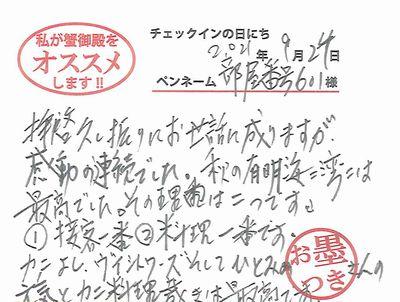 私が蟹御殿を
オススメ
します!!
チェックインの日にち
2021年9月24日
ペンネーム 部屋番号601様
拝啓久し振りにお世話に成りますが
感動の連続でした。秋の有明海二湾には
最高でした。その理由は二つです。
①接客一番②料理一番です。
カニよし、そして
お墨つき
さんの
元気とカニ料理